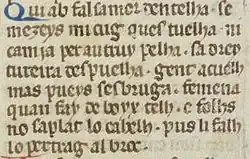 Qui ab fals amor dentelha. se
mezeys mi cug ques tuelha. ni
camia per autruy pelha. sa drey
tureira despuelha. gent acuelh
mas pueys se fbruga. femena
quan fay de bovs telh. e folhs
no saplat lo cabelh. pus li falh
lo pertrag al broc.